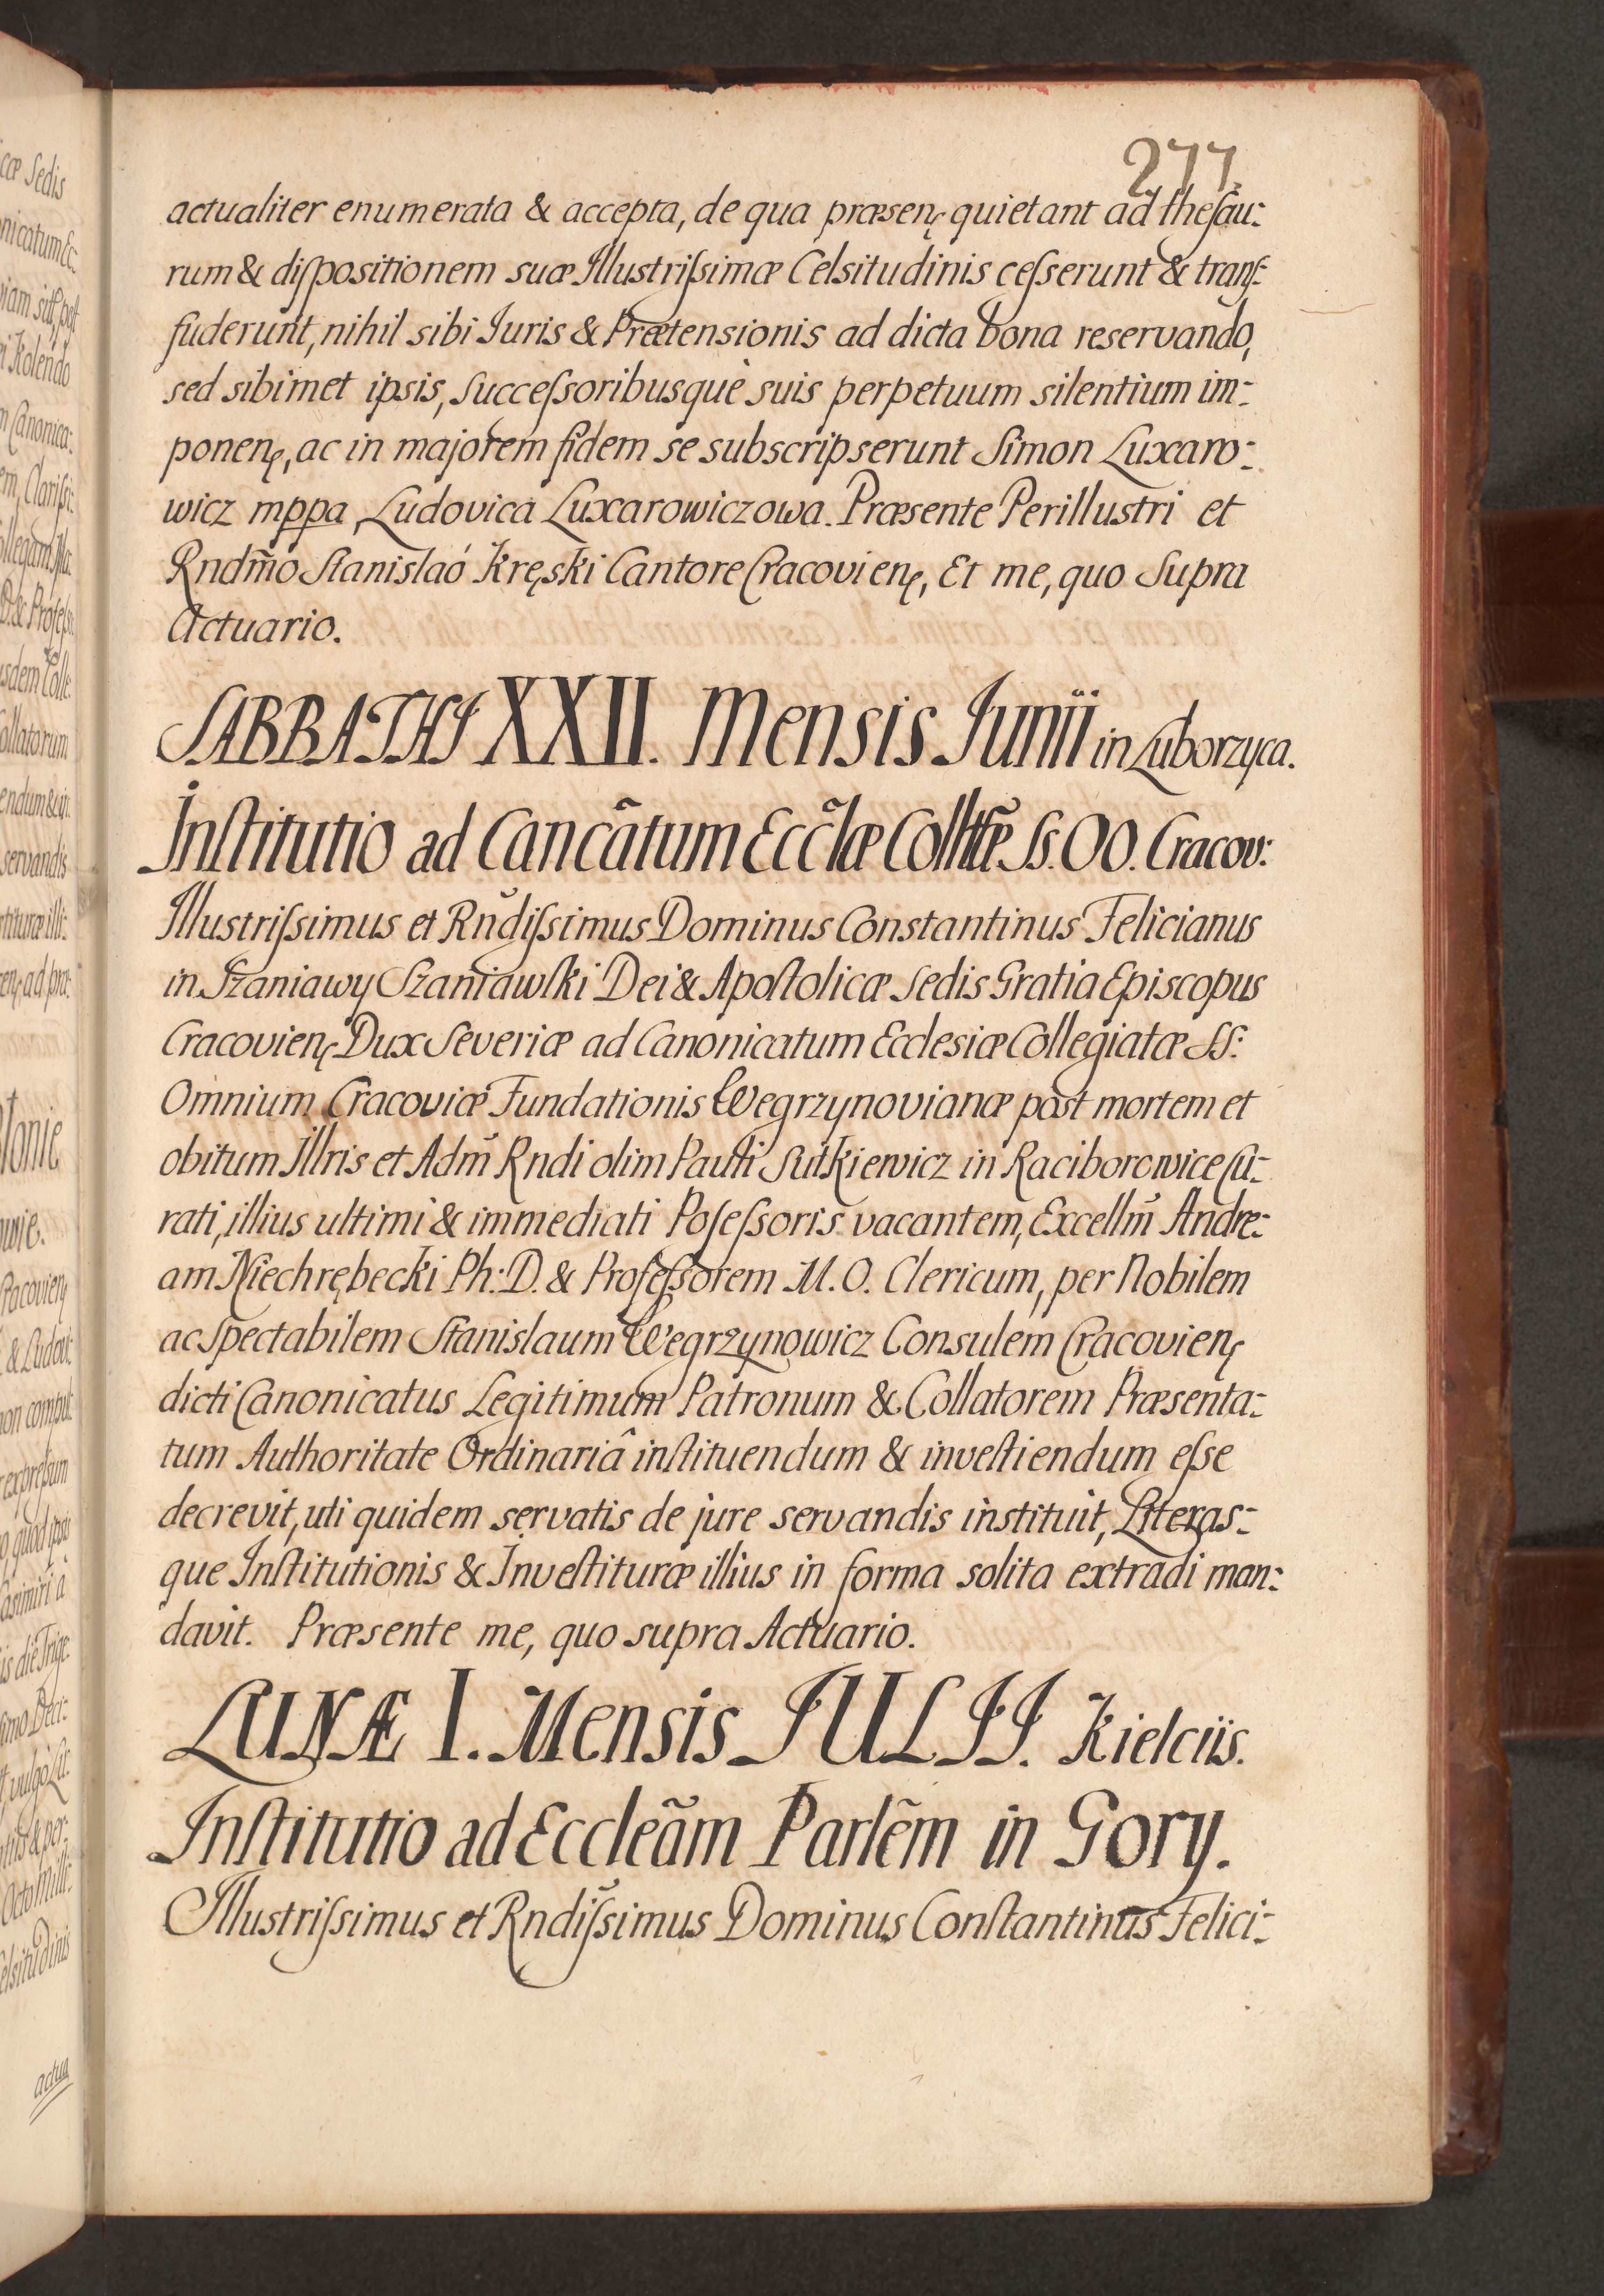 277.
actualiter enumerata & accepta, de qua præsenę quietant ad thesau:
rum & dispositionem suæ Illustrissimæ Celsitudinis cesserunt & trans:
fuderunt, nihil sibi Iuris & Prætensionis ad dicta bona reservando,
sed sibimet ipsis, Successoribusque suis perpetuum silentium im:
ponenę, ac in majorem fidem se subscripserunt Simon Luxaro:
wicz mppa, Ludovica Luxarowiczowa. Præsente Perillustri et
Rndm̃o Stanislao Kręski Cantore Cracovienę, Et me, quo Supra
Actuario.
SABBATHI XXII. Mensis Junii in Luborzyca.
Institutio ad Cancãtum Eccl̃æ Collt̃æ Ss. OO. Cracov:
Illustrissimus et Rñdissimus Dominus Constantinus Felicianus
in Szaniawy Szaniawski Dei & Apostolicæ Sedis Gratia Episcopus
Cracovienę Dux Severiæ ad Canonicatum Ecclesiæ Collegiatæ SS:
Omnium Cracoviæ Fundationis Wegrzynovianæ post mortem et
obitum Illris et Adm̃ Rndi olim Pauli Sutkiewicz in Raciborowice Cu:
rati, illius ultimi & immediati Possessoris vacantem, Excellm̃ Andre:
am Niechrębecki Ph: D. & Professorem M. O. Clericum, per Nobilem
ac Spectabilem Stanislaum Wegrzynowicz Consulem Cracovienę
dicti Canonicatus Legitimum Patronum & Collatorem Præsenta:
tum Authoritate Ordinariâ instituendum & investiendum esse
decrevit, uti quidem servatis de jure servandis instituit, Literas:
que Institutionis & Investituræ illius in forma solita extradi man:
davit. Præsente me, quo supra Actuario.
LUNÆ I. Mensis JULII. Kielciis.
Institutio ad Eccleãm Parlẽm in Gory.
Illustrissimus et Rndissimus Dominus Constantinus Felici: